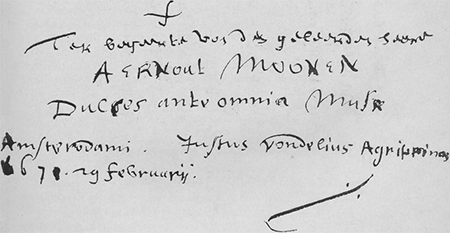 Ter begeerte van den geleerden heere
AERNOUt MOONEN
Dulces ante omnia Musæ
Amsterodami. Justus Vondelius Agrippinas
1671. 19 februarij.